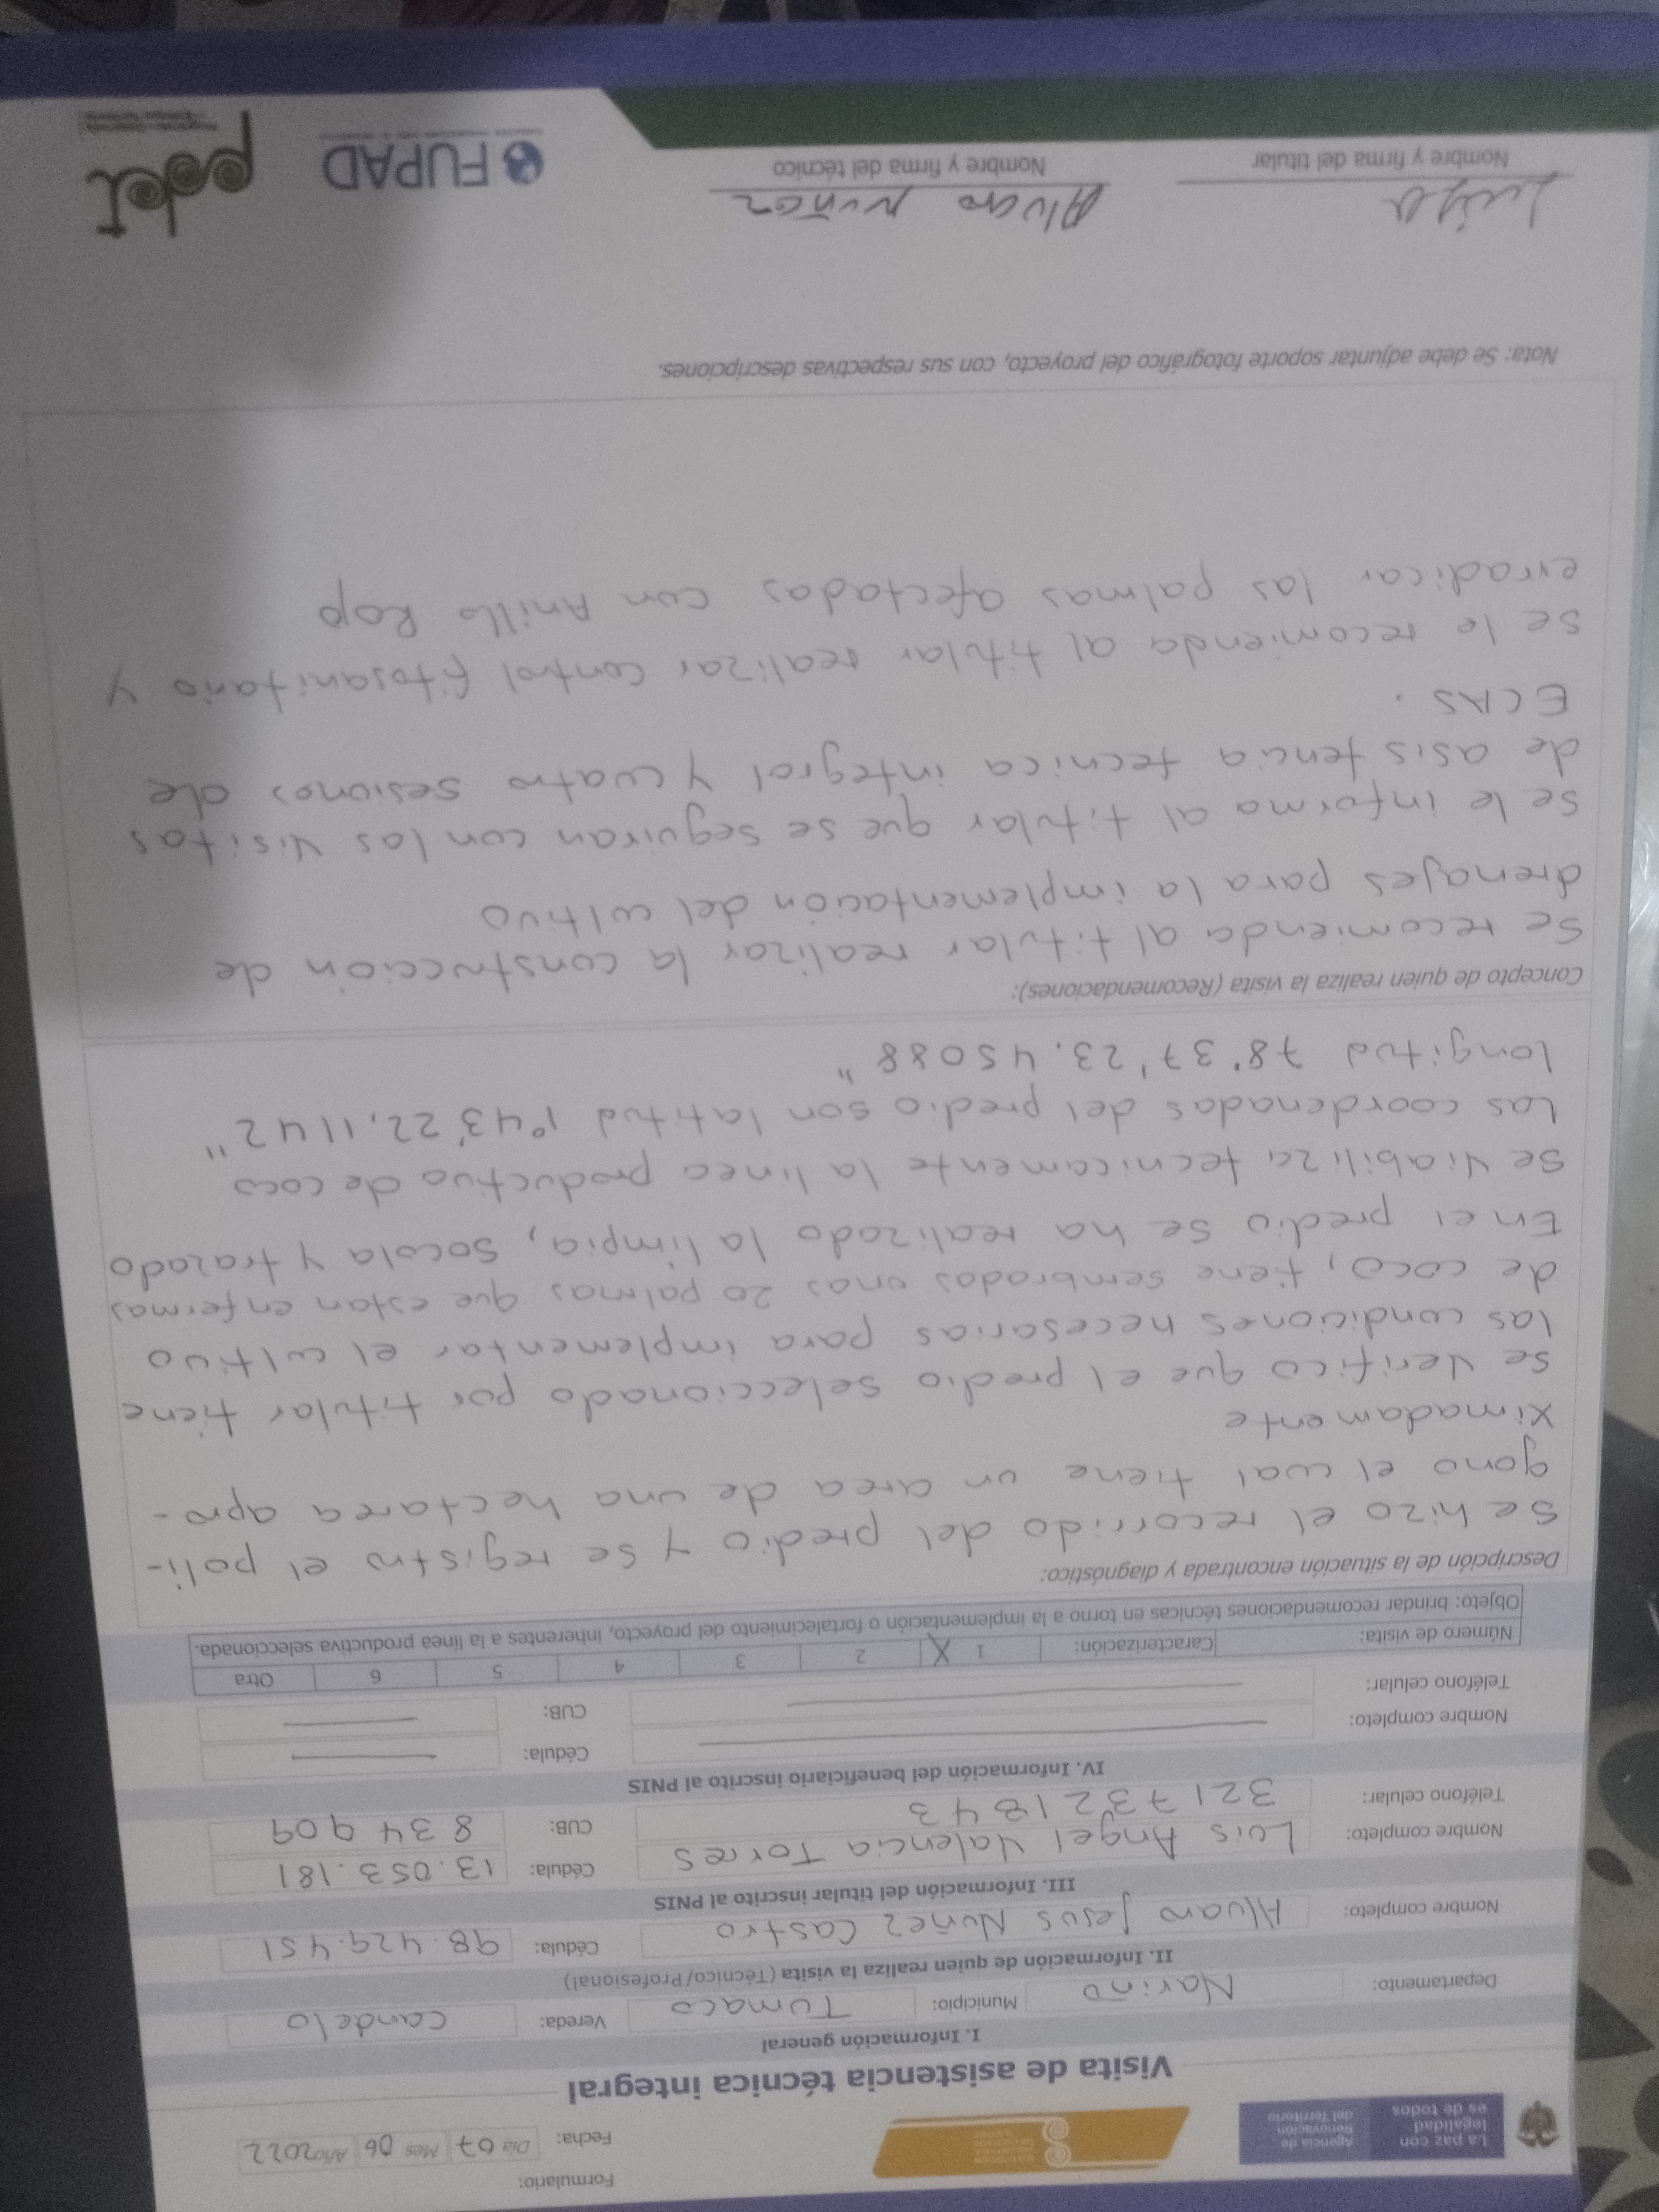 La paz con
legalidad
es de todos
Agencia de
Renovación
del Territorio
Formulario:
Fecha: Día 07 Mes 06 Año 2022
Visita de asistencia técnica integral
I. Información general
Departamento: Nariño Municipio: Tumaco Vereda: Candelo
II. Información de quien realiza la visita (Técnico/Profesional)
Nombre completo: Alvaro Jesus Nuñez Castro Cédula: 98.429.451
III. Información del titular inscrito al PNIS
Nombre completo: Luis Angel Valencia Torres Cédula: 13.053.181
Teléfono celular: 3217321843 CUB: 834909
IV. Información del beneficiario inscrito al PNIS
Nombre completo: Cédula:
Teléfono celular: CUB:
Número de visita: Caracterización: 1 X 2 3 4 5 6 Otra
Objeto: brindar recomendaciones técnicas en torno a la implementación o fortalecimiento del proyecto, inherentes a la línea productiva seleccionada.
Descripción de la situación encontrada y diagnóstico:
Se hizo el recorrido del predio y se registro el poli-
gono el cual tiene un area de una hectarea apro-
ximadamente
Se verifico que el predio seleccionado por titular tiene
las condiciones necesarias para implementar el cultivo
de coco, tiene sembradas unas 20 palmas que estan enfermas
En el predio se ha realizado la limpia, socola y trazado
Se viabiliza tecnicamente la linea productiva de coco
Las coordenadas del predio son latitud 1°43'22.1142"
longitud 78°37'23.45088"
Concepto de quien realiza la visita (Recomendaciones):
Se recomienda al titular realizar la construcción de
drenajes para la implementación del cultivo
Se le informa al titular que se seguiran con las visitas
de asistencia tecnica integral y cuatro sesiones de
ECAS.
Se le recomienda al titular realizar control fitosanitario y
erradicar las palmas afectadas con Anillo Rojo
Nota: Se debe adjuntar soporte fotográfico del proyecto, con sus respectivas descripciones.
Alvaro Nuñez
Nombre y firma del titular
Nombre y firma del técnico
FUPAD
pdet